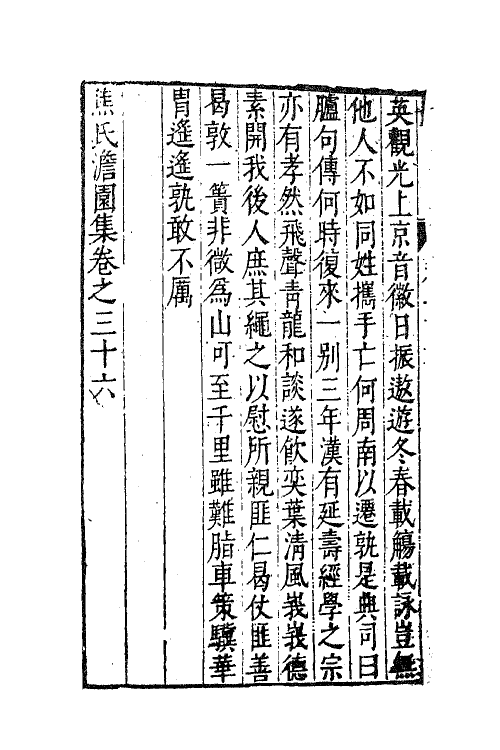 英觀光上京音徽日振遨遊冬春載觴載詠豈無
他人不如同姓攜手亡何周南以遷孰是典司曰
臚句傳何時復來一別三年漢有延壽經學之宗
亦有孝然飛聲青龍和談遂飲奕葉清風峩峩德
素開我後人庶其繩之以慰所親匪仁曷仗匪善
曷敦一簣非微爲山可至千里雖難脂車策驥華
胄遙遙孰敢不厲
焦氏澹園集卷之三十六